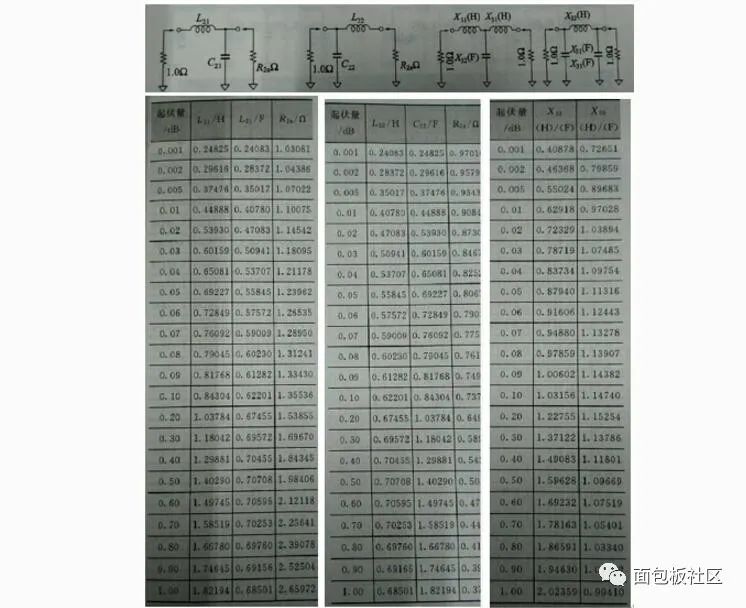 L21
C21
1.0Ω
R2nΩ
L22
C22
1.0Ω
R2nΩ
X31(H) X31(H)
X32(F)
1.0Ω
1.0Ω
X32(H)
X31(F)
X31(F)
1.0Ω
1.0Ω
起伏量/dB L21/H L21/F R2n/Ω
0.001 0.24825 0.24083 1.03081
0.002 0.29616 0.28372 1.04386
0.005 0.37476 0.35017 1.07022
0.01 0.44888 0.40780 1.10075
0.02 0.53930 0.47083 1.14542
0.03 0.60159 0.50941 1.18095
0.04 0.65081 0.53707 1.21178
0.05 0.69227 0.55845 1.23962
0.06 0.72849 0.57572 1.26535
0.07 0.76092 0.59009 1.28950
0.08 0.79045 0.60230 1.31241
0.09 0.81768 0.61282 1.33430
0.10 0.84304 0.62201 1.35536
0.20 1.03784 0.67455 1.53855
0.30 1.18042 0.69572 1.69670
0.40 1.29881 0.70455 1.84345
0.50 1.40290 0.70708 1.98406
0.60 1.49745 0.70595 2.12118
0.70 1.58519 0.70253 2.25641
0.80 1.66780 0.69760 2.39078
0.90 1.74645 0.69156 2.52504
1.00 1.82194 0.68501 2.65972
起伏量/dB L22/H C22/F R2n/Ω
0.001 0.24083 0.24825 0.9701
0.002 0.28372 0.29616 0.9579
0.005 0.35017 0.37476 0.9343
0.01 0.40780 0.44888 0.9084
0.02 0.47083 0.53930 0.8730
0.03 0.50941 0.60159 0.8467
0.04 0.53707 0.65081 0.8252
0.05 0.55845 0.69227 0.806
0.06 0.57572 0.72849 0.790
0.07 0.59009 0.76092 0.775
0.08 0.60230 0.79045 0.761
0.09 0.61282 0.81768 0.749
0.10 0.62201 0.84304 0.737
0.20 0.67455 1.03784 0.649
0.30 0.69572 1.18042 0.589
0.40 0.70455 1.29881 0.54
0.50 0.70708 1.40290 0.50
0.60 0.70595 1.49745 0.47
0.70 0.70253 1.58519 0.44
0.80 0.69760 1.66780 0.41
0.90 0.69165 1.74645 0.39
1.00 0.68501 1.82194 0.37
起伏量/dB X31(H)/(F) X32(H)/(F)
0.001 0.40878 0.72651
0.002 0.46368 0.79859
0.005 0.55024 0.89683
0.01 0.62918 0.97028
0.02 0.72329 1.03894
0.03 0.78719 1.07485
0.04 0.83734 1.09754
0.05 0.87940 1.11316
0.06 0.91606 1.12443
0.07 0.94880 1.13278
0.08 0.97859 1.13907
0.09 1.00602 1.14382
0.10 1.03156 1.14740
0.20 1.22755 1.15254
0.30 1.37122 1.13786
0.40 1.49083 1.11801
0.50 1.59628 1.09669
0.60 1.69232 1.07519
0.70 1.78163 1.05401
0.80 1.86591 1.03340
0.90 1.94630
1.00 2.02359 0.99410
面包板社区